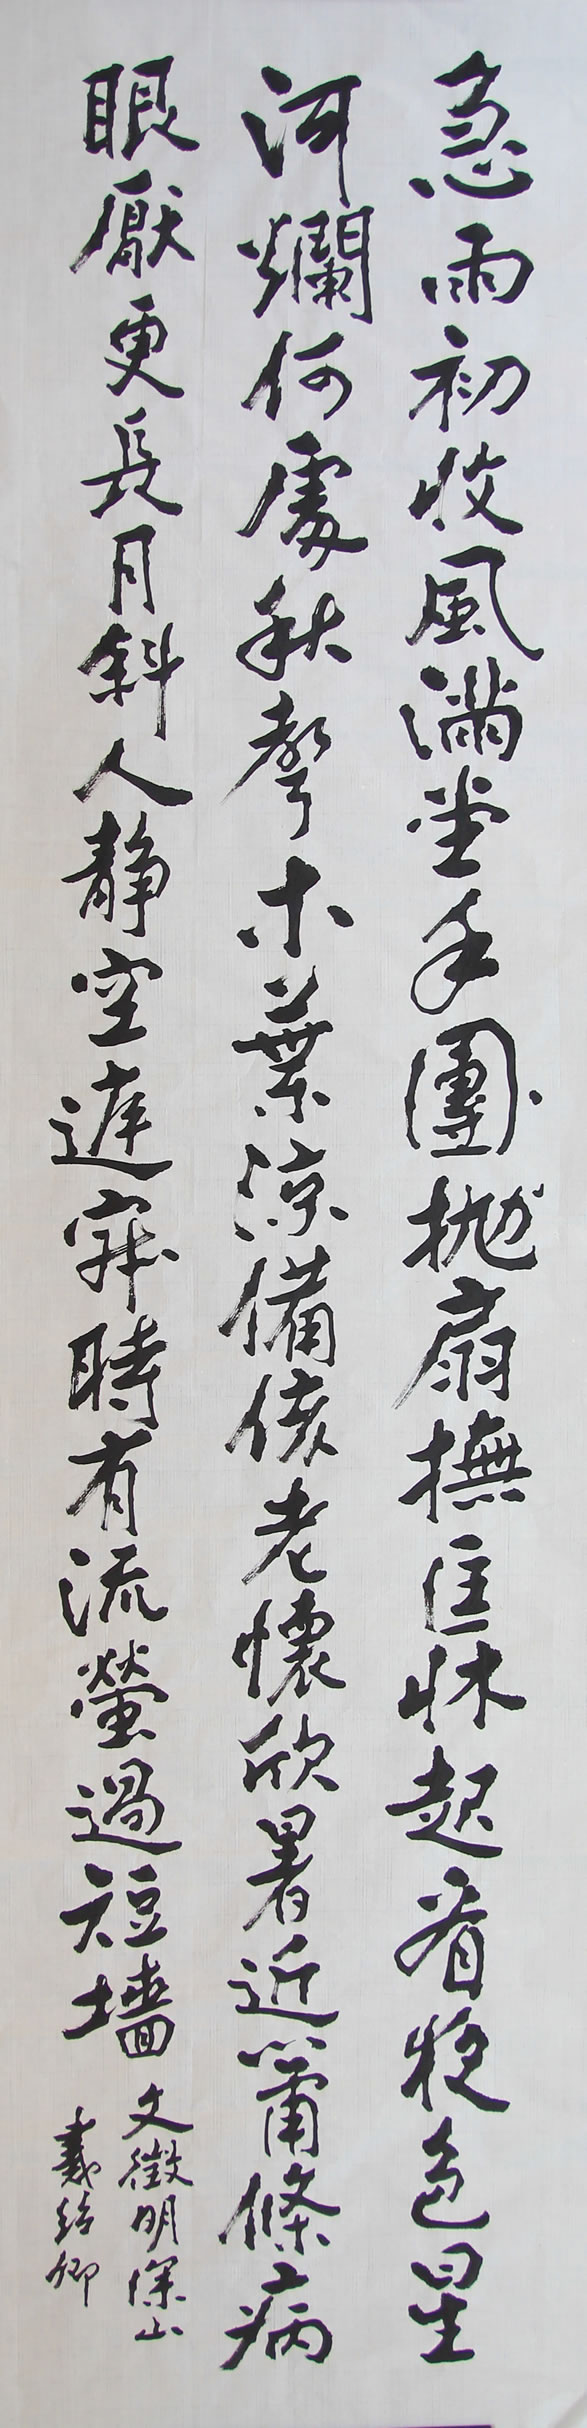 急雨初收風滿堂手團抛扇撫匡牀起看夜色星
河爛何處秋聲木葉涼備老懷欣暑近蕭條病
眼厭更長月斜人靜空遅寐時有流螢過短墻
文徵明深山
戴卿